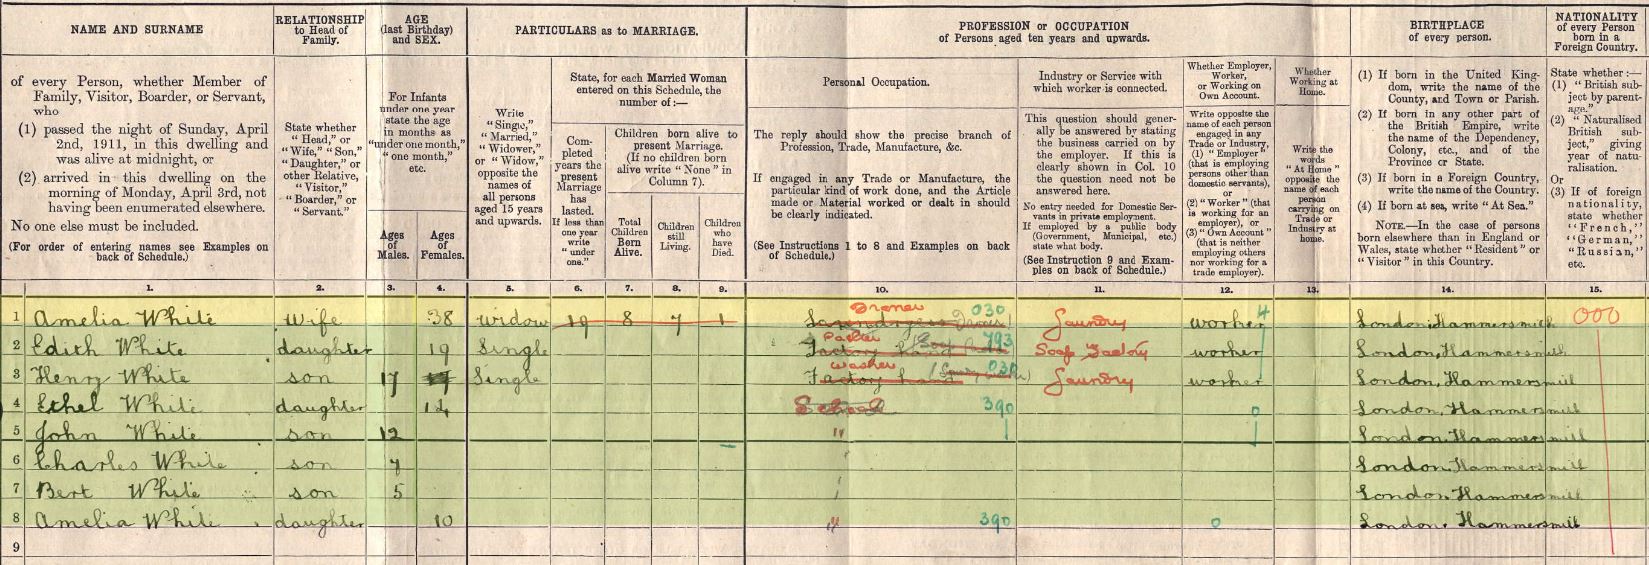 NAME AND SURNAME
RELATIONSHIP to Head of Family.
AGE (last Birthday) and SEX.
PARTICULARS as to MARRIAGE.
PROFESSION or OCCUPATION of Persons aged ten years and upwards.
BIRTHPLACE of every person.
NATIONALITY of every Person born in a Foreign Country.
of every Person, whether Member of
Family, Visitor, Boarder, or Servant,
who
(1) passed the night of Sunday, April
2nd, 1911, in this dwelling and
was alive at midnight, or
(2) arrived in this dwelling on the
morning of Monday, April 3rd, not
having been enumerated elsewhere.
No one else must be included.
(For order of entering names see Examples on
back of Schedule.)
State whether
"Head," or
"Wife," "Son,"
"Daughter," or
other Relative,
"Visitor,"
"Boarder," or
"Servant."
For Infants
under one year
state the age
in months as
"under one month,"
"one month,"
etc.
Ages of Males.
Ages of Females.
Write
"Single,"
"Married,"
"Widower,"
or "Widow,"
opposite the
names of
all persons
aged 15 years
and upwards.
State, for each Married Woman
entered on this Schedule, the
number of:—
Com-
pleted
years the
present
Marriage
has
lasted.
If less than
one year
write
"under
one."
Children born alive to
present Marriage.
(If no children born
alive write "None" in
Column 7).
Total
Children
Born
Alive.
Children
still
Living.
Children
who
have
Died.
Personal Occupation.
The reply should show the precise branch of
Profession, Trade, Manufacture, &c.
If engaged in any Trade or Manufacture, the
particular kind of work done, and the Article
made or Material worked or dealt in should
be clearly indicated.
(See Instructions 1 to 8 and Examples on back
of Schedule.)
Industry or Service with
which worker is connected.
This question should gener-
ally be answered by stating
the business carried on by
the employer. If this is
clearly shown in Col. 10
the question need not be
answered here.
No entry needed for Domestic Ser-
vants in private employment.
If employed by a public body
(Government, Municipal, etc.)
state what body.
(See Instruction 9 and Exam-
ples on back of Schedule.)
Whether Employer,
Worker,
or Working on
Own Account.
Write opposite the
name of each person
engaged in any
Trade or Industry,
(1) "Employer"
(that is employing
persons other than
domestic servants),
or
(2) "Worker" (that
is working for an
employer), or
(3) "Own Account"
(that is neither
employing others
nor working for a
trade employer).
Whether
Working at
Home.
Write the
words
"At Home"
opposite the
name of each
person
carrying on
Trade or
Industry at
home.
(1) If born in the United King-
dom, write the name of the
County, and Town or Parish.
(2) If born in any other part of
the British Empire, write
the name of the Dependency,
Colony, etc., and of the
Province or State.
(3) If born in a Foreign Country,
write the name of the Country.
(4) If born at sea, write "At Sea."
NOTE.—In the case of persons
born elsewhere than in England or
Wales, state whether "Resident" or
"Visitor" in this Country.
State whether:—
(1) "British sub-
ject by parent-
age."
(2) "Naturalised
British sub-
ject," giving
year of natu-
ralisation.
Or
(3) If of foreign
nationality,
state whether
"French,"
"German,"
"Russian,"
etc.
1. 2. 3. 4. 5. 6. 7. 8. 9. 10. 11. 12. 13. 14. 15.
1 Amelia White wife 38 widow 19 8 7 1 Ironer 030 Laundry worker 4 London, Hammersmith 000
2 Edith White daughter 19 Single Packer Factory hand 793 Soap Factory worker London, Hammersmith
3 Henry White son 17 Single washer Factory hand 030 Laundry worker London, Hammersmith
4 Ethel White daughter 14 School 390 0 London, Hammersmith
5 John White son 12 " London, Hammersmith
6 Charles White son 7 London, Hammersmith
7 Bert White son 5 London, Hammersmith
8 Amelia White daughter 10 " 390 0 London, Hammersmith
9